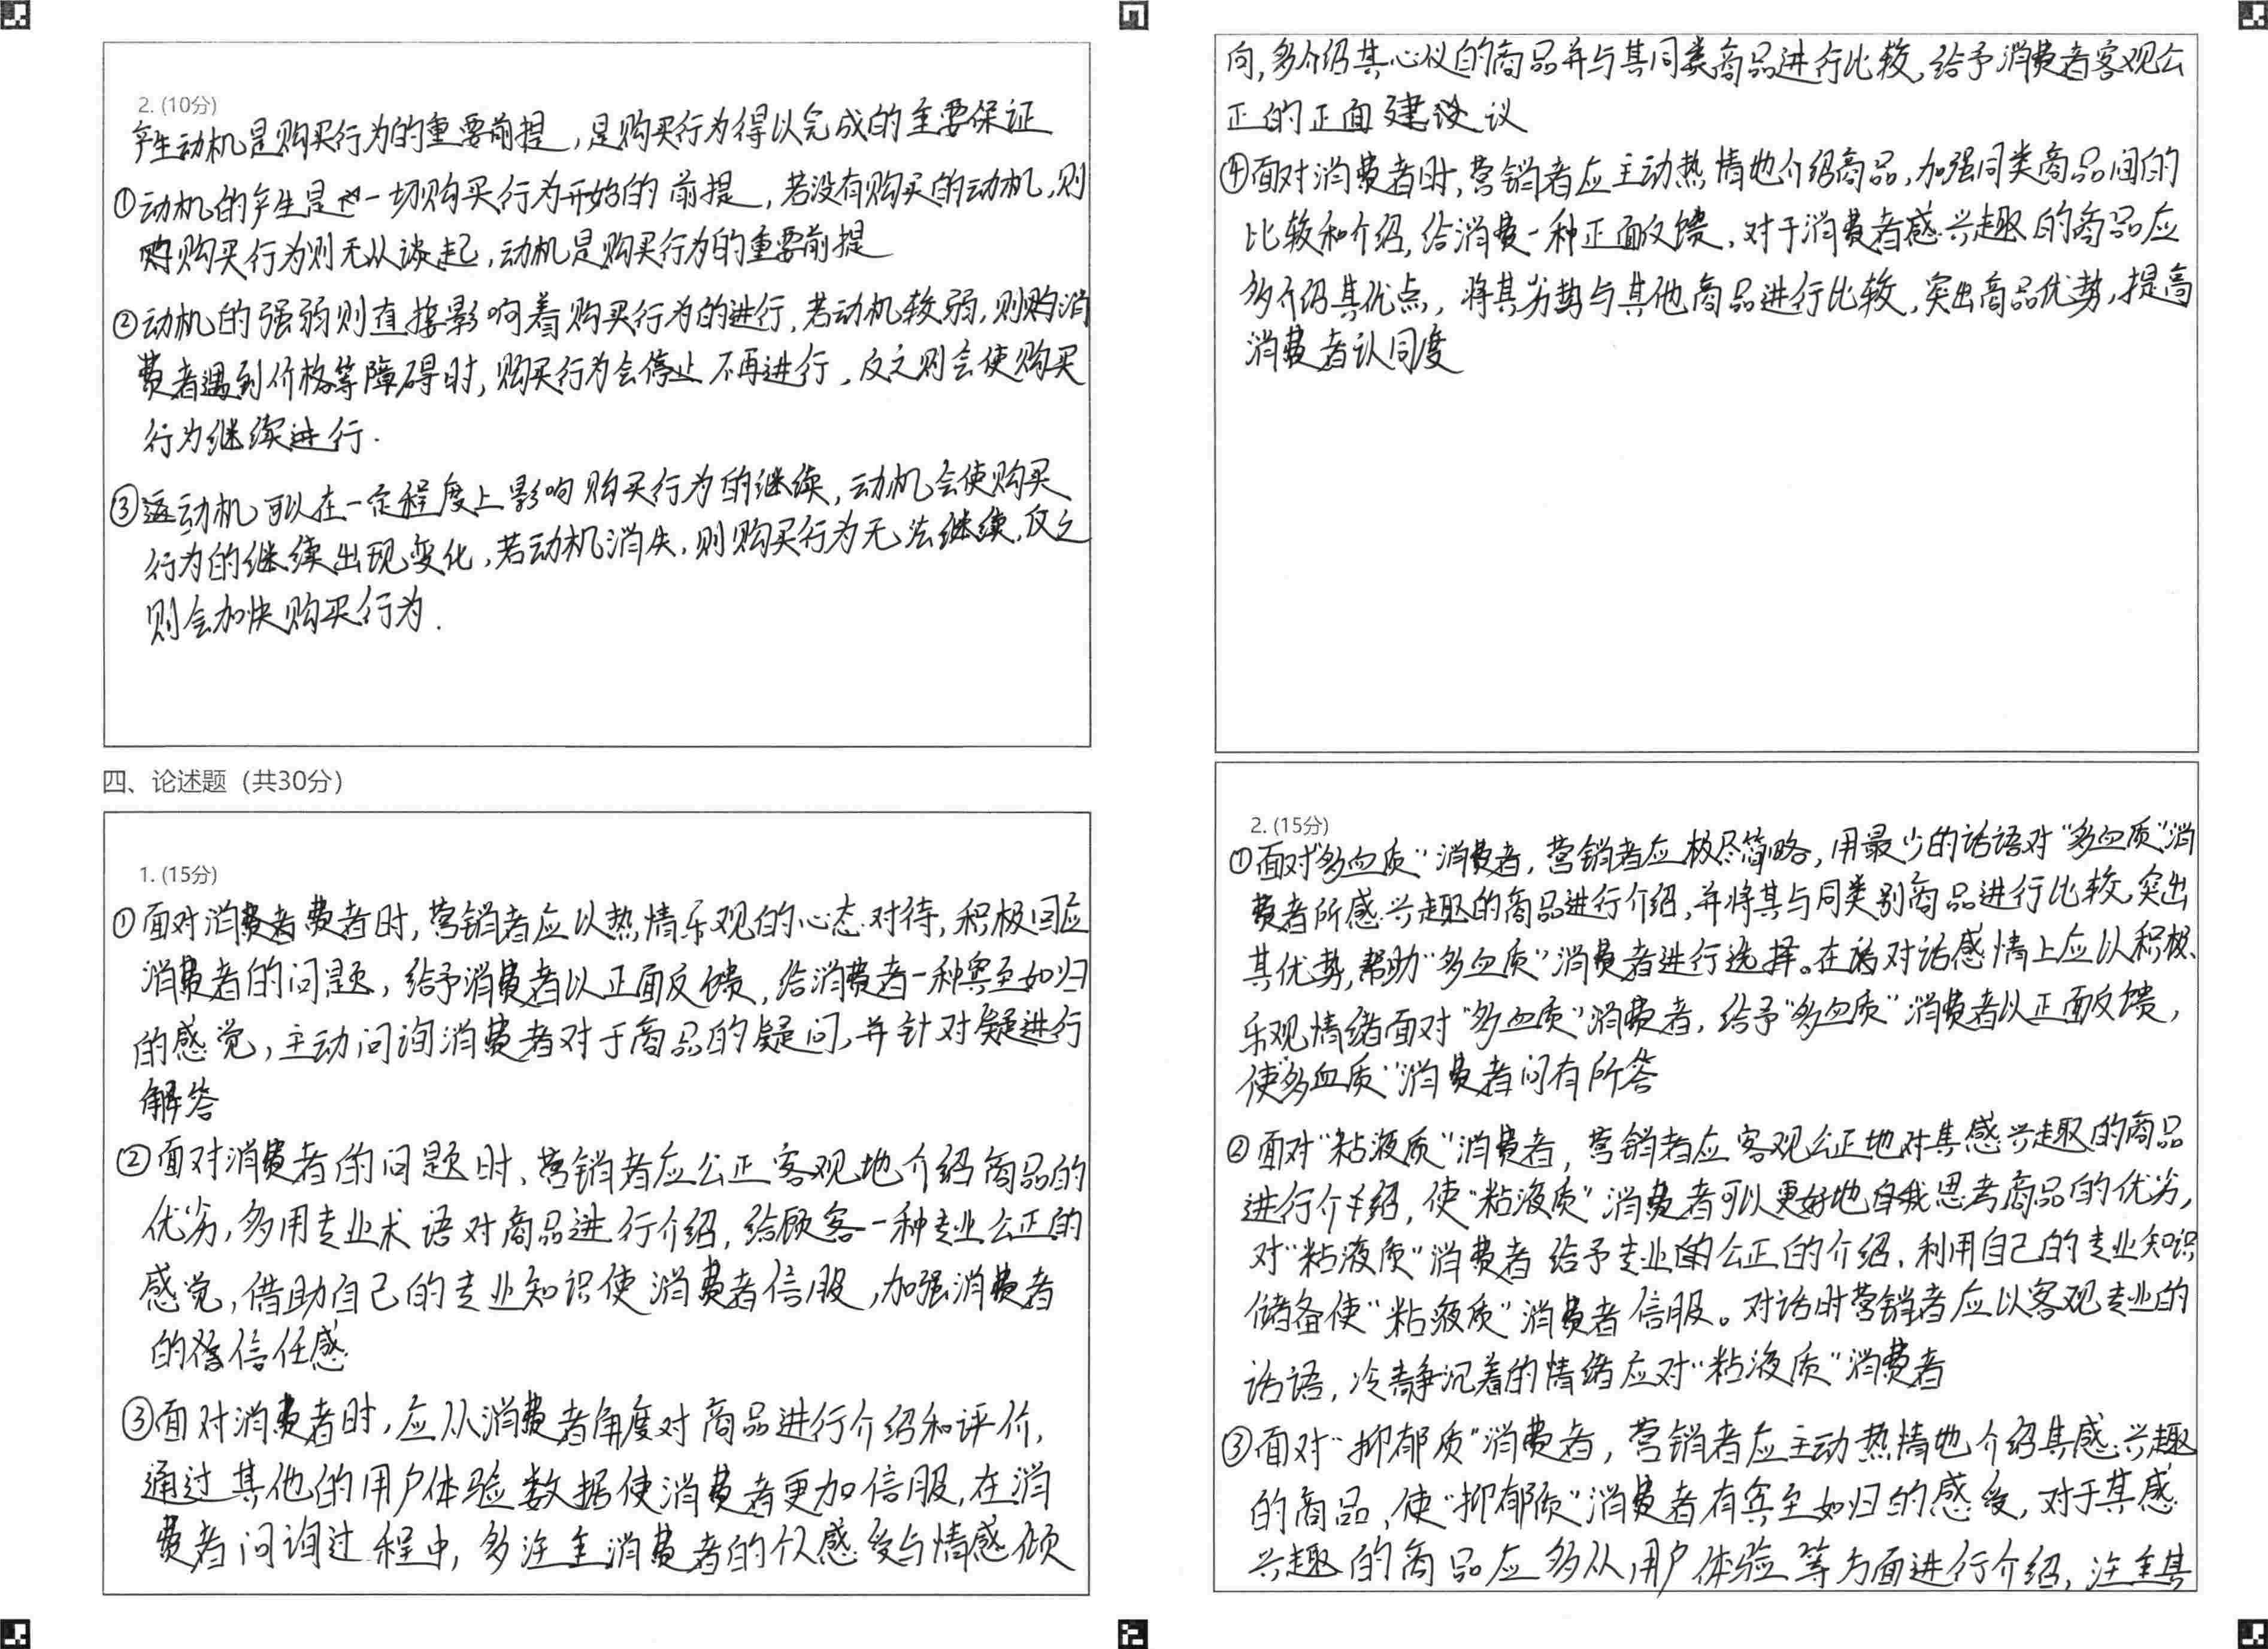 2. (10分)
产生动机是购买行为的重要前提,是购买行为得以完成的主要保证
①动机的产生是一切购买行为开始的前提,若没有购买的动机,则
购买行为则无从谈起,动机是购买行为的重要前提
②动机的强弱则直接影响着购买行为的进行,若动机较弱,则购消
费者遇到价格等障碍时,购买行为会停止不再进行,反之则会使购买
行为继续进行.
③动机可以在一定程度上影响购买行为的继续,动机会使购买
行为的继续出现变化,若动机消失,则购买行为无法继续,反之
则会加快购买行为.
四、论述题(共30分)
1. (15分)
①面对消费者费者时,营销者应以热情乐观的心态对待,积极回应
消费者的问题,给予消费者以正面反馈,给消费者一种宾至如归
的感觉,主动问询消费者对于商品的疑问,并针对疑进行
解答
②面对消费者的问题时、营销者应公正客观地介绍商品的
优劣,多用专业术语对商品进行介绍,给顾客一种专业公正的
感觉,借助自己的专业知识使消费者信服,加强消费者
的信任感
③面对消费者时,应从消费者角度对商品进行介绍和评价,
通过其他的用户体验数据使消费者更加信服,在消
费者问询过程中,多注重消费者的个人感受与情感倾
向,多介绍其心仪的商品并与其同类商品进行比较,给予消费者客观公
正的正面建议
④面对消费者时,营销者应主动热情地介绍商品,加强同类商品间的
比较和介绍,给消费一种正面反馈,对于消费者感兴趣的商品应
多介绍其优点,将其劣势与其他商品进行比较,突出商品优势,提高
消费者认同度
2. (15分)
①面对“多血质”消费者,营销者应极尽简略,用最少的话语对“多血质”消
费者所感兴趣的商品进行介绍,并将其与同类别商品进行比较,突出
其优势,帮助“多血质”消费者进行选择。在对话感情上应以积极、
乐观情绪面对“多血质”消费者,给予“多血质”消费者以正面反馈,
使“多血质”消费者问有所答
②面对“粘液质”消费者,营销者应客观公正地对其感兴趣的商品
进行介绍,使“粘液质”消费者可以更好地自我思考商品的优劣,
对“粘液质”消费者给予专业的公正的介绍,利用自己的专业知识
储备使“粘液质”消费者信服。对话时营销者应以客观专业的
话语,冷静沉着的情绪应对“粘液质”消费者
③面对“抑郁质”消费者,营销者应主动热情地介绍其感兴趣
的商品,使“抑郁质”消费者有宾至如归的感受,对于其感
兴趣的商品应多从用户体验等方面进行介绍,注重其